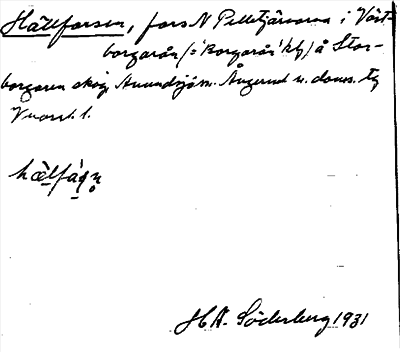 Hällforsen, fors N Pelletjärnarna i Väst-
borgarån (= Borgarån kbl) å Stor-
borgaren skog, Anundsjö sn. Ångerml. n. doms. tg
V norrl. l.
hæ̀lfáṣṇ
H.A. Söderberg 1931